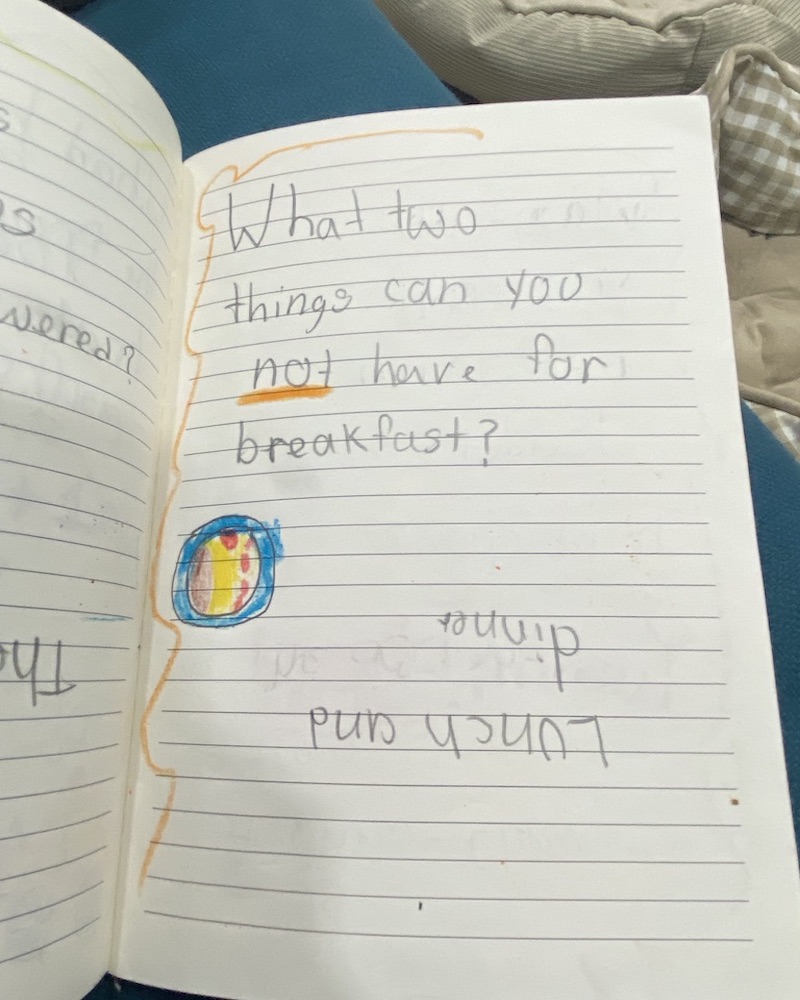 s
s
wered?
The
What two
things can you
not have for
breakfast?
Lunch and
dinner